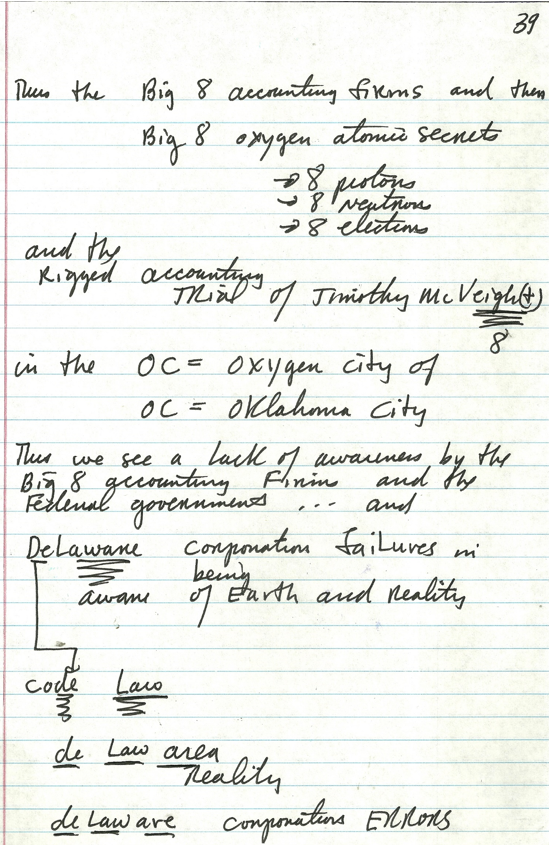 39
Thus the Big 8 accounting firms and then
Big 8 oxygen atomic secrets
→ 8 protons
→ 8 neutrons
→ 8 electrons
and the
Rigged accounting
Trial of Timothy McVeigh(t)
8
in the OC = Oxygen city of
OC = Oklahoma City
Thus we see a lack of awareness by the
Big 8 accounting Firms and the
Federal governments ... and
DeLaware corporation failures in
being
aware of Earth and Reality
code Law
de Law area
Reality
deLaware corporations ERRORS